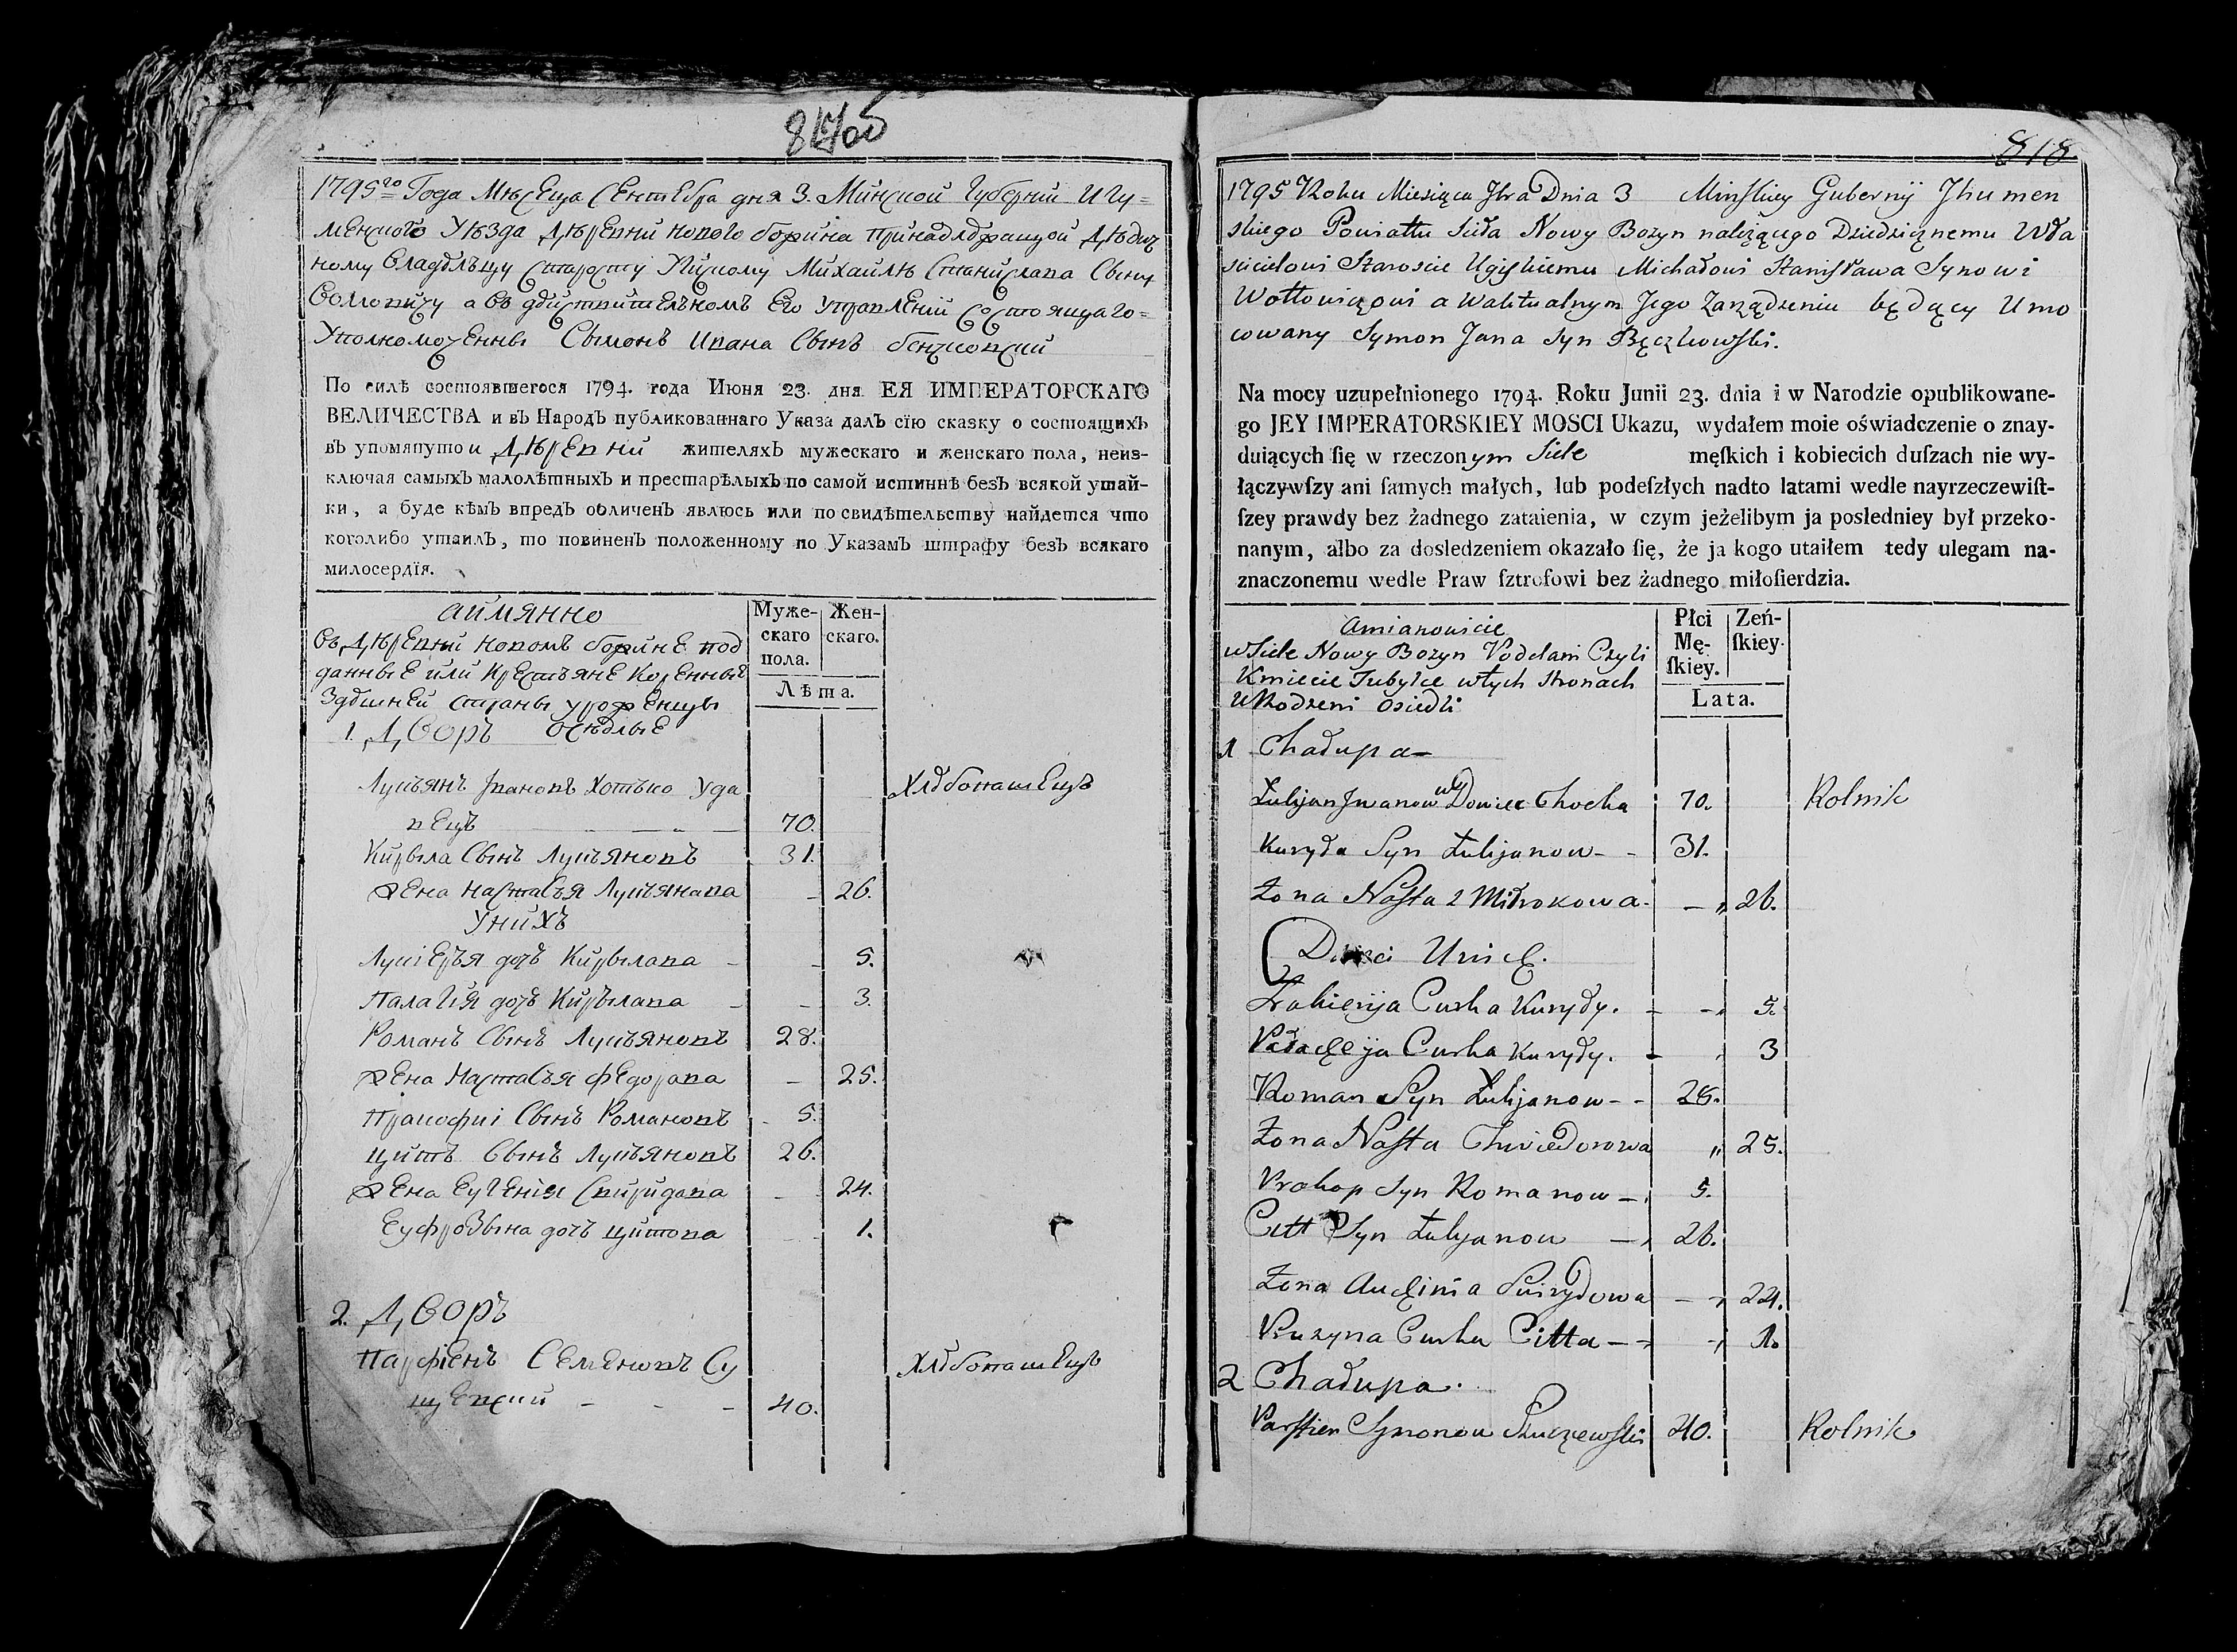 817об
1795го Года Мѣсеца Сентебра дня 3. Минской Губерній Игу=
менского Уѣзда Дѣревни нового божина принадлѣжащой Дѣдич
ному Владѣлъцу Старосту Михаилѣ Станислава Сыну
а въ дѣиствителъномъ Его Управленій Состоящаго=
Уполномоченны Сымонъ Ивана Сынъ бенчковский
По силѣ состоявшегося 1794. года Июня 23. дня ЕЯ ИМПЕРАТОРСКАГО
ВЕЛИЧЕСТВА и въ Народъ публикованнаго Указа далъ сїю сказку о состоящихъ
въ упомянутои Дѣревни жителяхъ мужескаго и женскаго пола, неиз-
ключая самыхъ малолѣтныхъ и престарѣлыхъ по самой истиннѣ безъ всякой утай-
ки, а буде кѣмъ впредь обличенъ явлюсь или по свидѣтельству найдется что
коголибо утаилъ, то повиненъ положенному по Указамъ штрафу безъ всякаго
милосердїя.
аймянно
Въ Дѣревни новомъ божине под
данные или Крестъяне Коренные
Здѣшней страны уроженцы
1. Дворъ осѣдлые
Муже-
скаго
пола.
Жен-
скаго.
Лѣта.
Лукъянъ Іванов Хотько Удо
вецъ 70. Хлѣбопашецъ
Кирыла Сынъ Лукъяновъ 31.
Жена Настасъя Лукъянава 26.
Унихъ
Лукіеръя дочъ Кирылава 5.
Палагія дочъ Кирылава 3.
Романъ Сынъ Лукъяновъ 28.
Жена Настасъя Федорава 25.
Пракофиі Сынъ Романовъ 5.
Цитъ Сынъ Лукъяновъ 26.
Жена Еугенія Спиридава 24.
Еуфрозына дочъ Цитова 1.
2. Дворъ
Парфіенъ Семеновъ Су
щевский 40. Хлѣбопашецъ
818
1795 Roku Miesiąca 7bra Dnia 3 Minskiey Gubernij Jhumen
skiego Powiattu Sieła Nowy Bożyn należącego Dziedzicznemu Wła
scicielowi Staroscie Ugiskiemu Michałowi Stanisława Synowi
Wołłowiczowi a Waktualnym Jego Zarządzeniu będący Umo
cowany Symon Jana Syn Bęczkowski.
Na mocy uzupełnionego 1794. Roku Junii 23. dnia i w Narodzie opublikowane-
go JEY IMPERATORSKIEY MOSCI Ukazu, wydałem moie oświadczenie o znay-
duiących ſię w rzeczonym Siele męſkich i kobiecich duſzach nie wy-
łączywſzy ani ſamych małych, lub podeſzłych nadto latami wedle nayrzeczewiſt-
ſzey prawdy bez żadnego zataienia, w czym jeżelibym ja posledniey był przeko-
nanym, albo za dosledzeniem okazało ſię, że ja kogo utaiłem tedy ulegam na-
znaczonemu wedle Praw ſztrofowi bez żadnego miłoſierdzia.
Amianowicie
w Siele Nowy Bożyn Poddani Czyli
Kmiecie Tubylce wtych stronach
Urodzeni Osiedli
Płci
Mę-
ſkiey.
Zeń-
ſkiey.
Lata.
1 Chałupa
Łukjan Jwanow Wdowiec Choćka 70. Rolnik
Kuryła Syn Łukjanow 31.
Żona Nasta 26.
Dzieci Unich.
Łukierija Curka Kuryły. 5.
Pałacheija Curka Kuryły. 3
Roman Syn Łukjanow 28.
Żona Nasta Chwiedorowa 25.
Prokop Syn Romanow 5.
Citt Syn Łukjanow 26.
Żona Auginia Swirydowa 24.
Pruzyna Curka Citta 1.
2 Chałupa.
Parffien Symonow Suszczewski 40. Rolnik